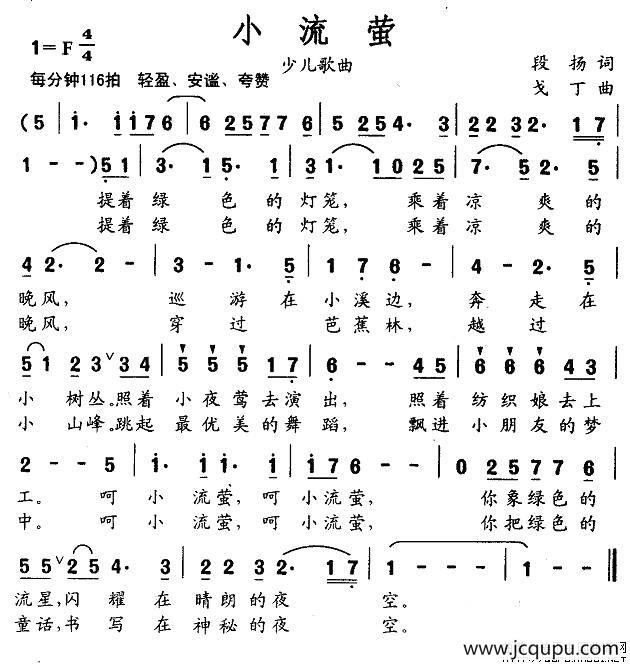 小流萤
1=F 4/4
少儿歌曲
段扬词
每分钟116拍 轻盈、安谧、夸赞
戈丁曲
(5 | 1· 1176 | 6 2577 6 | 5 254· 3 | 2232· 17 |
1 - -)51 | 3· 15· 1 | 31· 1025 | 7· 52· 5 |
提着绿 色的灯笼, 乘着凉 爽的
提着绿 色的灯笼, 乘着凉 爽的
42· 2 - | 3 - 1· 5 | 1 7 6 - | 4 - 2· 5 |
晚风, 巡 游在小溪边, 奔 走在
晚风, 穿 过 芭蕉林, 越 过
51 23∨34 | 5 5 5 17 | 6 - - 45 | 6 6 6 43 |
小 树丛。照着 小夜莺去演出, 照着纺织娘去上
小 山峰。跳起 最优美的舞蹈, 飘进小朋友的梦
2 - - 5 | 1· 1 1· 1 | 151· 1 - | 0 257 7 6 |
工。 呵小流萤,呵小流萤, 你象绿色的
中。 呵小流萤,呵小流萤, 你把绿色的
55∨25 4· 3 | 2 2 3 2 | 2· 17 | 1 - - - | 1 - - ‖
流星,闪耀在晴朗的夜 空。
童话,书写在神秘的夜 空。
www.jcqupu.com